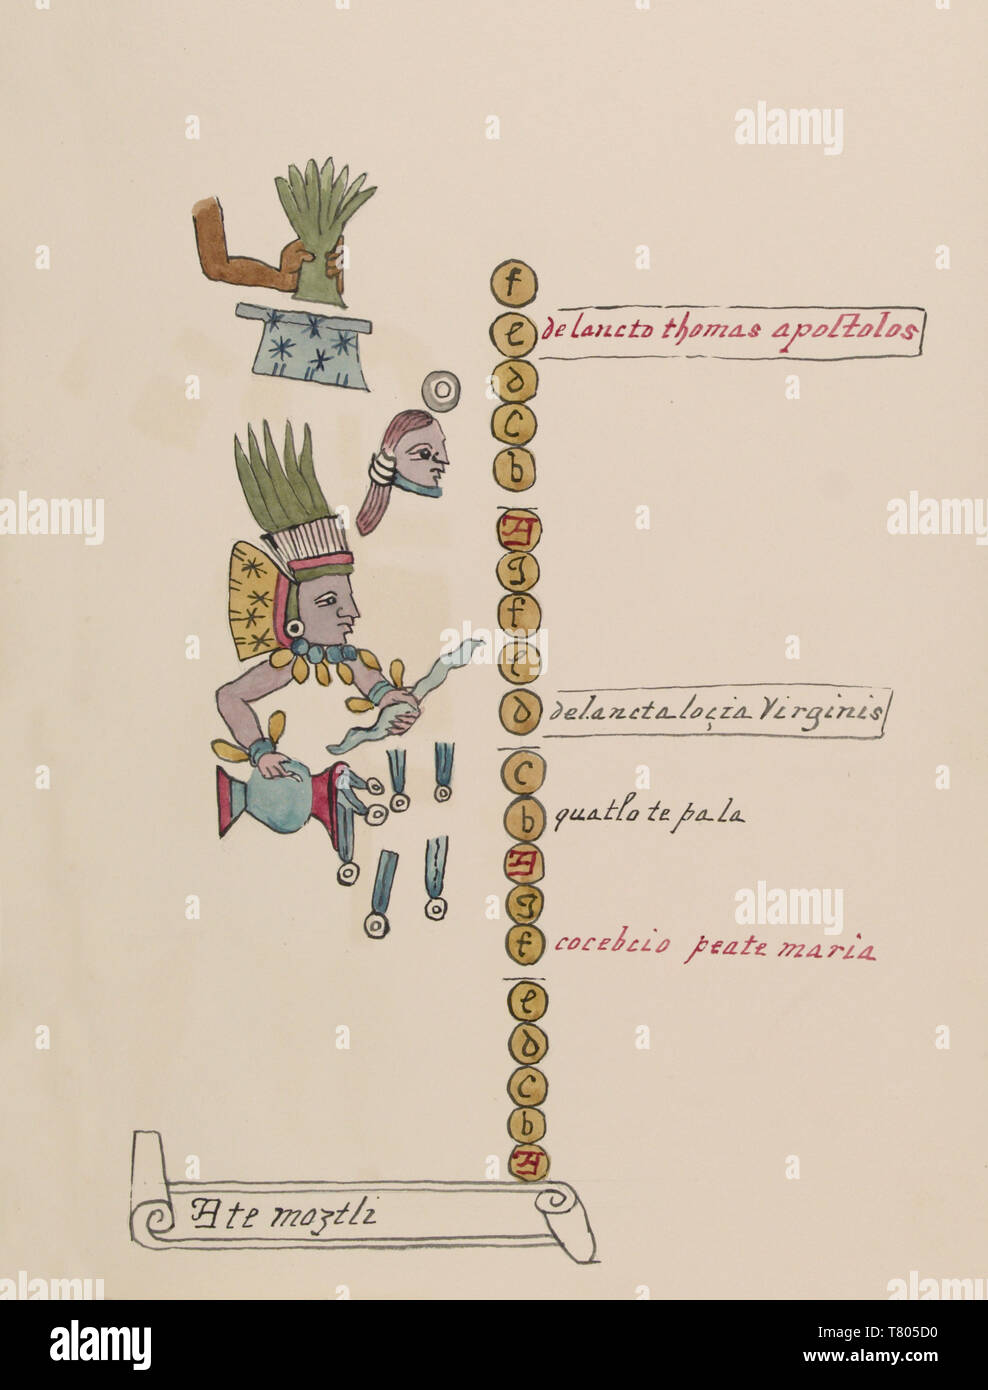 f
e de lancto thomas apostolos
d
c
b
A
g
f
e
d de lancta loçia Virginis
c
b quatlo te pa la
A
g
f cocebcio peate maria
e
d
c
b
A
Ate moztli
alamy
alamy
alamy
a
a
a
alamy
Image ID: T805D0
www.alamy.com